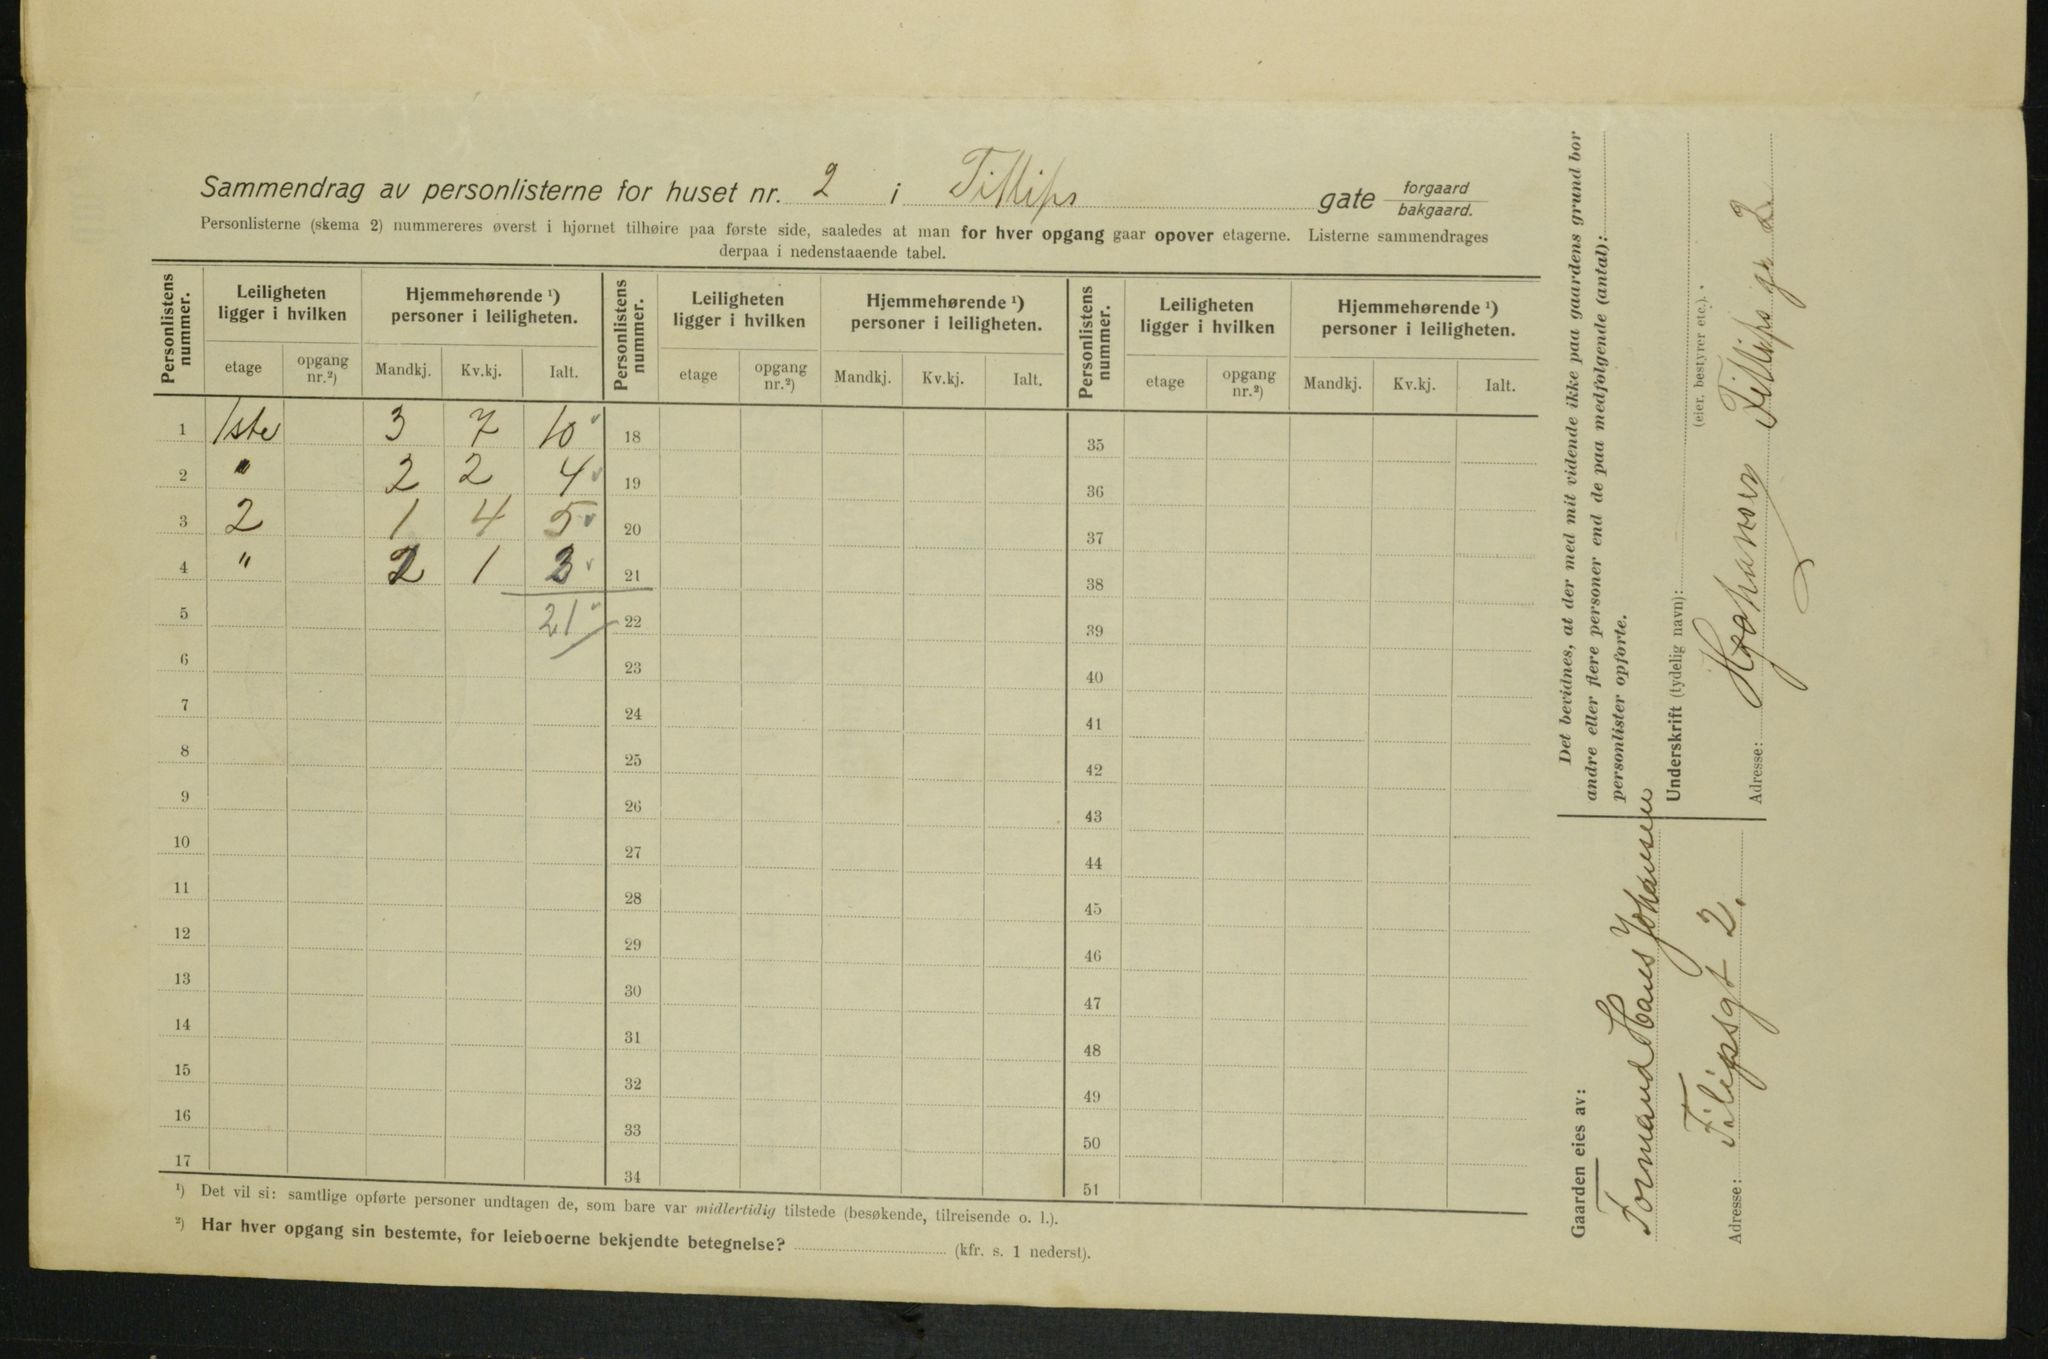 Sammendrag av personlisterne for huset nr. 2 i Fillips gate forgaard bakgaard.
Personlisterne (skema 2) nummereres øverst i hjørnet tilhøire paa første side, saaledes at man for hver opgang gaar opover etagerne. Listerne sammendrages
derpaa i nedenstaaende tabel.
Personlistens nummer. Leiligheten ligger i hvilken Hjemmehørende ¹) personer i leiligheten. Personlistens nummer. Leiligheten ligger i hvilken Hjemmehørende ¹) personer i leiligheten. Personlistens nummer. Leiligheten ligger i hvilken Hjemmehørende ¹) personer i leiligheten.
etage opgang nr.²) Mandkj. Kv.kj. Ialt. etage opgang nr.²) Mandkj. Kv.kj. Ialt. etage opgang nr.²) Mandkj. Kv.kj. Ialt.
1 1ste 3 7 10 18 35
2 " 2 2 4 19 36
3 2 1 4 5 20 37
4 " 2 1 3 21 38
5 21 22 39
6 23 40
7 24 41
8 25 42
9 26 43
10 27 44
11 28 45
12 29 46
13 30 47
14 31 48
15 32 49
16 33 50
17 34 51
¹) Det vil si: samtlige opførte personer undtagen de, som bare var midlertidig tilstede (besøkende, tilreisende o. l.).
²) Har hver opgang sin bestemte, for leieboerne bekjendte betegnelse? (kfr. s. 1 nederst).
Det bevidnes, at der med mit vidende ikke paa gaardens grund bor
andre eller flere personer end de paa medfølgende (antal):
personlister opførte.
Underskrift (tydelig navn):
(eier, bestyrer etc.).
Adresse: Fillips gt 2
Gaarden eies av:
Formand Hans Johansen
Adresse: Filipsgt 2.